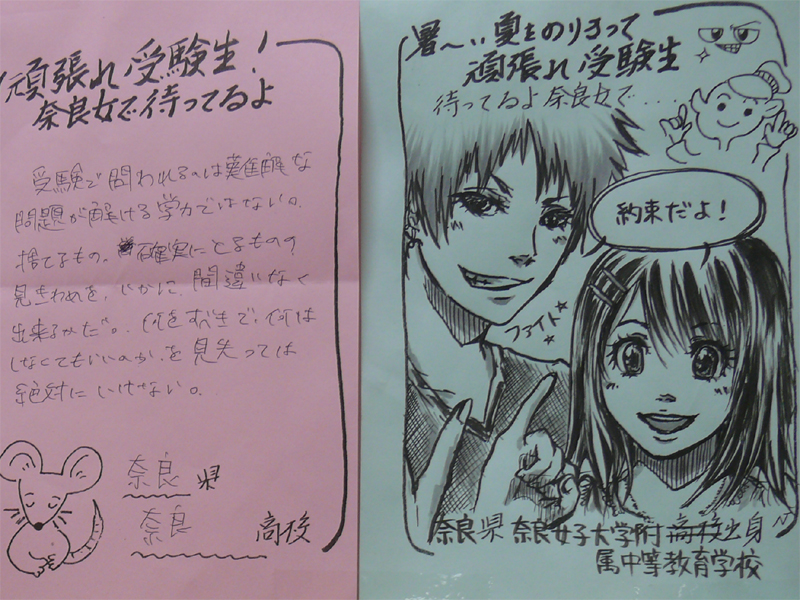 頑張れ受験生！
奈良女で待ってるよ
受験で問われるのは難解な
問題が解ける学力ではない。
捨てるもの。確実にとるものの
見きわめを、いかに、間違いなく
出来るかだ。何をすべきで、何は
しなくてもいいのか、を見失っては
絶対にいけない。
奈良県
奈良 高校
暑〜い夏をのりきって
頑張れ受験生
待ってるよ奈良女で...
約束だよ！
ファイト
奈良県 奈良女子大学附高校出身
属中等教育学校